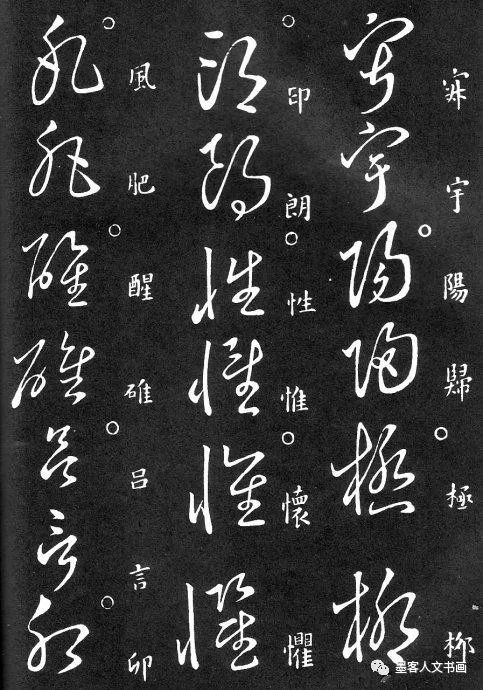 宇陽歸極柳
印朗性惟懷懼
風肥醒碓吕言卯
墨客人文书画